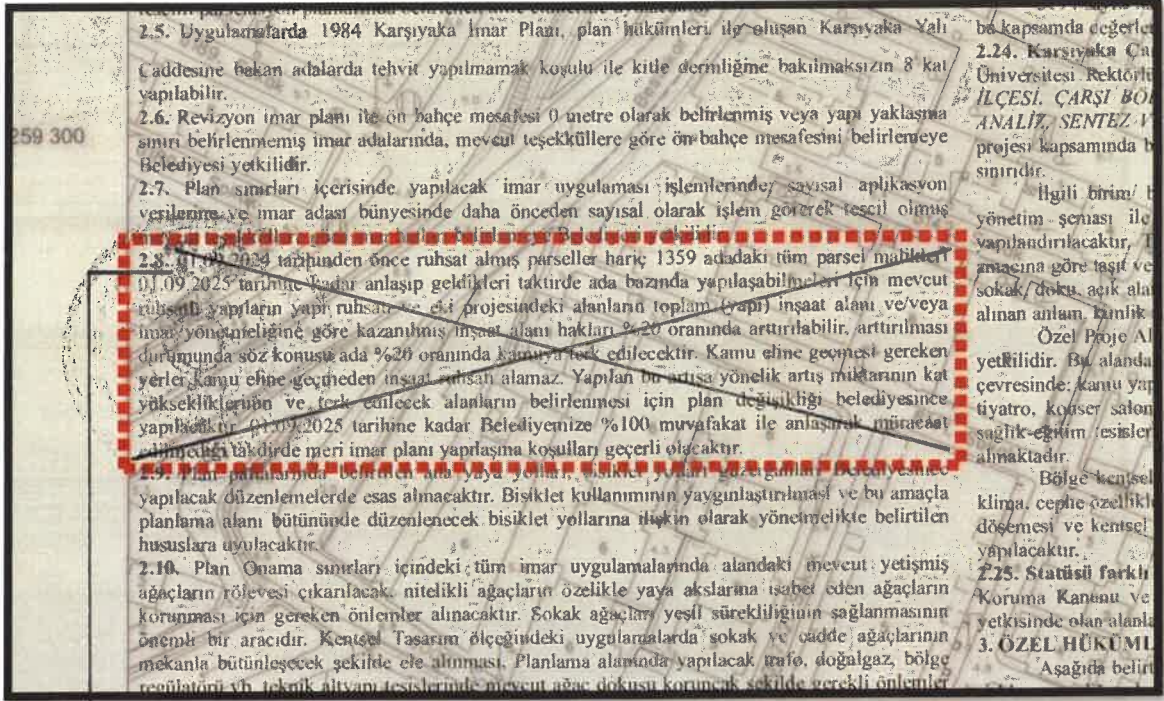 2.5. Uygulamalarda 1984 Karşıyaka İmar Planı, plan hükümleri ile oluşan Karşıyaka Yalı
Caddesine bakan adalarda tehvit yapılmamak koşulu ile kitle derinliğine bakılmaksızın 8 kat
yapılabilir.
2.6. Revizyon imar planı ile ön bahçe mesafesi 0 metre olarak belirlenmiş veya yapı yaklaşma
sınırı belirlenmemiş imar adalarında, mevcut teşekküllere göre ön bahçe mesafesini belirlemeye
Belediyesi yetkilidir.
259 300
2.7. Plan sınırları içerisinde yapılacak imar uygulaması işlemlerinde, sayısal aplikasyon
verilerine ve imar adası bünyesinde daha önceden sayısal olarak işlem görerek tescil olmuş
2.8. 01.09.2024 tarihinden önce ruhsat almış parseller hariç 1359 adadaki tüm parsel malikleri
01.09.2025 tarihine kadar anlaşıp geldikleri taktirde ada bazında yapılaşabilmeleri için mevcut
ruhsatlı yapıların yapı ruhsatı ve eki projesindeki alanların toplam (yapı) inşaat alanı ve/veya
imar yönetmeliğine göre kazanılmış inşaat alanı hakları %20 oranında arttırılabilir, arttırılması
durumunda söz konusu ada %20 oranında kamuya terk edilecektir. Kamu eline geçmesi gereken
yerler kamu eline geçmeden inşaat ruhsatı alamaz. Yapılan bu artışa yönelik artış miktarının kat
yüksekliklerinin ve terk edilecek alanların belirlenmesi için plan değişikliği belediyesince
yapılacaktır. 01.09.2025 tarihine kadar Belediyemize %100 muvafakat ile anlaşarak müracaat
edilmediği takdirde meri imar planı yapılaşma koşulları geçerli olacaktır.
2.9. Plan paftalarında belirtilen ana yaya yolları, bisiklet yolları güzergahları Belediyesince
yapılacak düzenlemelerde esas alınacaktır. Bisiklet kullanımının yaygınlaştırılması ve bu amaçla
planlama alanı bütününde düzenlenecek bisiklet yollarına ilişkin olarak yönetmelikte belirtilen
hususlara uyulacaktır.
2.10. Plan Onama sınırları içindeki tüm imar uygulamalarında alandaki mevcut yetişmiş
ağaçların rölevesi çıkarılacak, nitelikli ağaçların özelikle yaya akslarına isabet eden ağaçların
korunması için gereken önlemler alınacaktır. Sokak ağaçları yeşil sürekliliğinin sağlanmasının
önemli bir aracıdır. Kentsel Tasarım ölçeğindeki uygulamalarda sokak ve cadde ağaçlarının
mekanla bütünleşecek şekilde ele alınması, Planlama alanında yapılacak trafo, doğalgaz, bölge
regülatörü vb. teknik altyapı tesislerinde mevcut ağaç dokusu koruncak şekilde gerekli önlemler
bu kapsamda değerle
2.24. Karşıyaka Ça
Üniversitesi Rektörl
İLÇESİ, ÇARŞI BÖ
ANALİZ, SENTEZ V
projesi kapsamında b
sınırıdır.
İlgili birim/ b
yönetim şeması ile
yapılandırılacaktır, T
amacına göre taşıt ve
sokak, doku, açık ala
alınan anlam, kimlik
Özel Proje Al
yetkilidir. Bu alanda
çevresinde; kamu yap
tiyatro, konser salon
sağlık-eğitim tesisler
almaktadır.
Bölge kentsel
klima, cephe özellikl
döşemesi ve kentsel
yapılacaktır.
2.25. Statüsü farklı
Koruma Kanunu ve
yetkisinde olan alanla
3. ÖZEL HÜKÜML
Aşağıda belirt